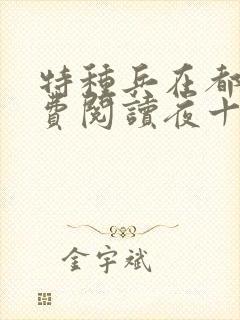 特種兵在都
費閱讀夜十
金宇斌